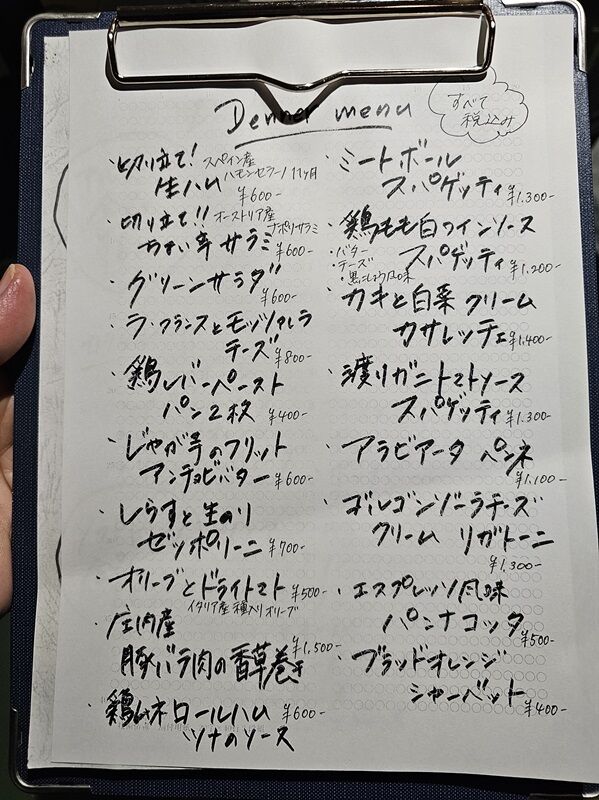 Denner menu
すべて
税込み
・切り立て! スペイン産
生ハム ハモンセラーノ 11ヶ月
¥600-
・切り立て!! オーストリア産
ナポリサラミ
サラミ ¥600-
・グリーンサラダ
¥600-
・ラ・フランスとモッツァレラ
チーズ ¥800-
・鶏レバーペースト
パン2枚 ¥400-
・じゃが芋のフリット
アンチョビバター ¥600-
・しらすと生のり
ゼッポリーニ ¥700-
・オリーブとドライトマト ¥500-
イタリア産 種入りオリーブ
・庄内産
¥1,500-
豚バラ肉の香草巻き
・鶏ムネロールハム ¥600-
ツナのソース
・ミートボール
スパゲッティ ¥1.300-
・鶏もも白ワインソース
・バター
・チーズ
・黒こしょう風味
スパゲッティ ¥1.200-
・カキと白菜クリーム
カサレッチェ ¥1.400-
・渡りガニトマトソース
スパゲッティ ¥1.300-
・アラビアータ ペンネ
¥1.100-
・ゴルゴンゾーラチーズ
クリーム リガトーニ
¥1.300-
・エスプレッソ風味
パンナコッタ
¥500-
・ブラッドオレンジ
シャーベット ¥400-